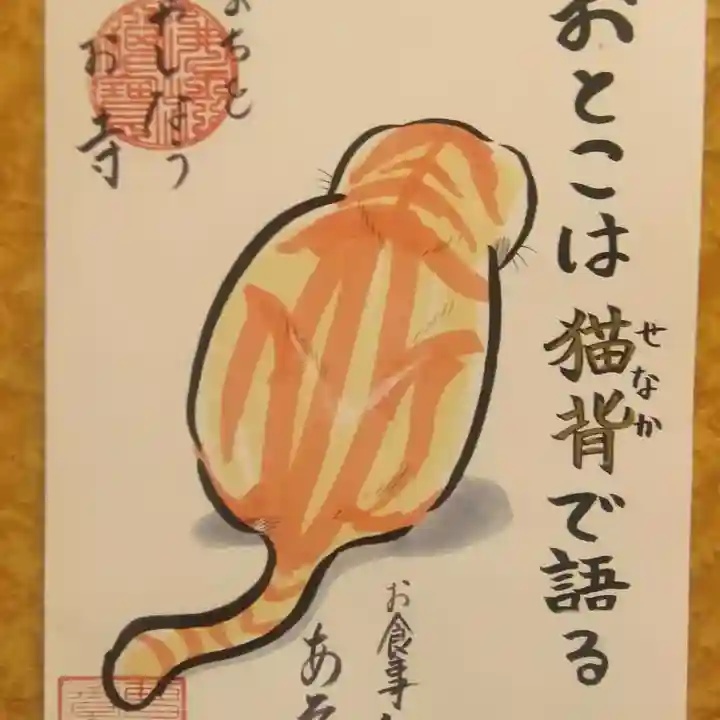 おとこは猫背で語る
せなか
まちと
やしなう
お寺
お食事
あそ